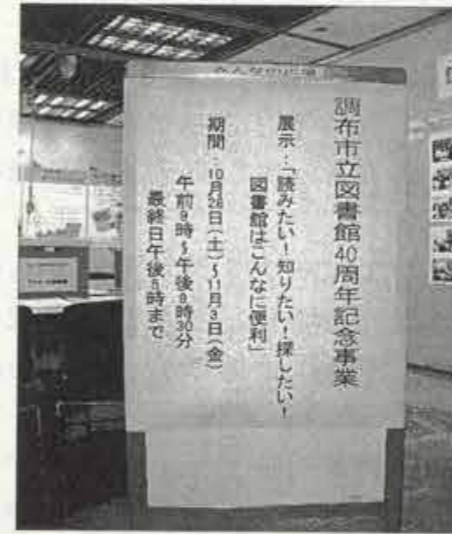 みんなの広場
調布市立図書館40周年記念事業
展示：「読みたい！知りたい！探したい！
図書館はこんなに便利」
期間：10月28日（土）～11月3日（金）
午前9時～午後9時30分
最終日午後5時まで